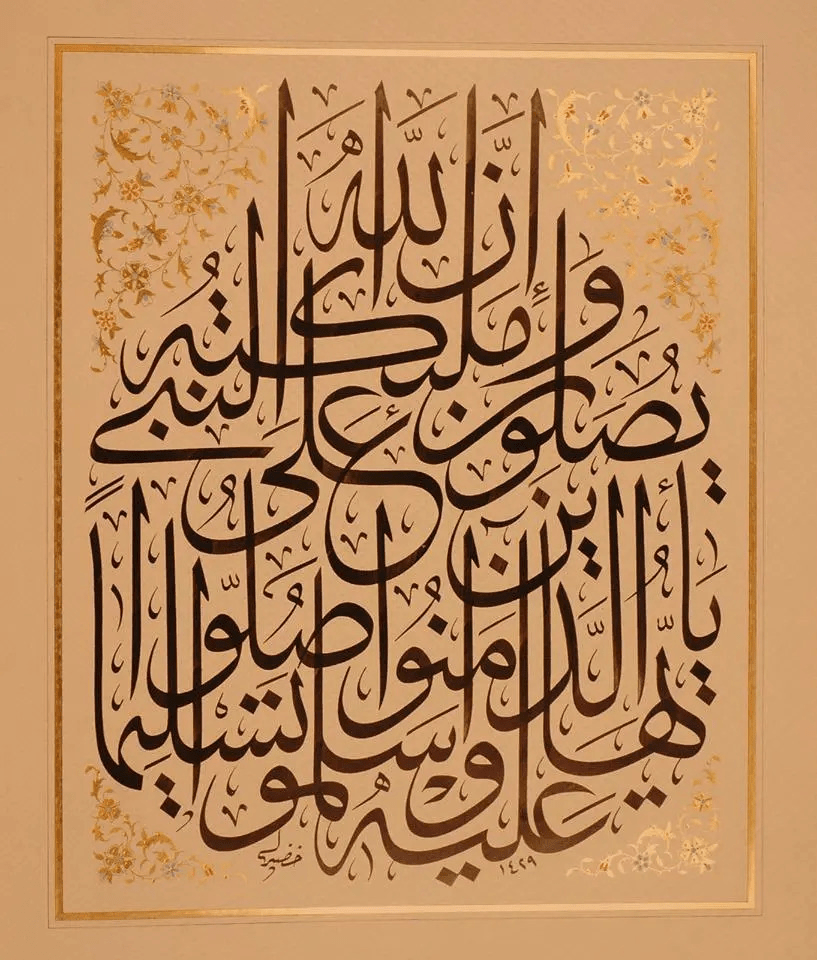 إِنَّ اللَّهَ
وَمَلَٰئِكَتَهُ
يُصَلُّونَ عَلَى النَّبِيِّ
يَٰأَيُّهَا الَّذِينَ ءَامَنُوا صَلُّوا
عَلَيْهِ وَسَلِّمُوا تَسْلِيمًا
خضير
١٤٢٩